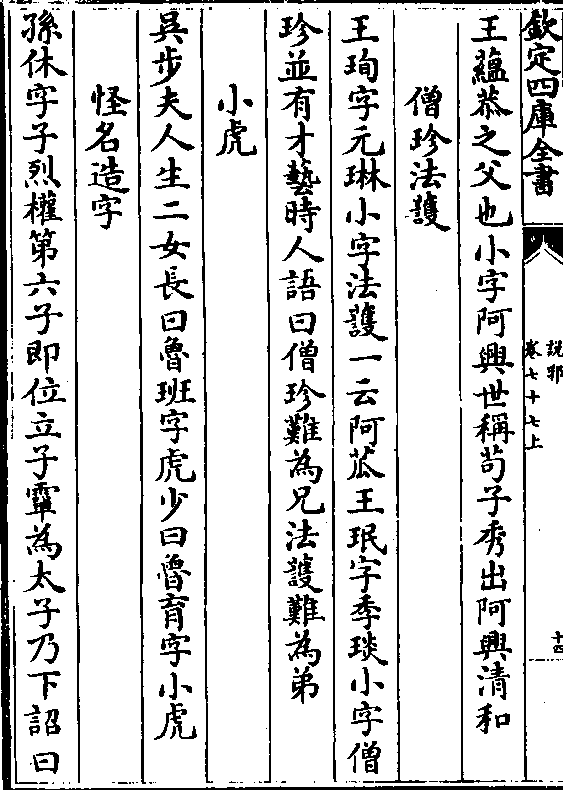 欽定四庫全書
說郛
卷七十七上
十四
王蘊恭之父也小字阿興世稱茍子秀出阿興清和
僧珍法護
王珣字元琳小字法護一云阿苽王珉字季琰小字僧
珍並有才藝時人語曰僧珍難為兄法護難為弟
小虎
吳步夫人生二女長曰魯班字虎少曰魯育字小虎
怪名造字
孫休字子烈權第六子即位立子𩅦為太子乃下詔曰